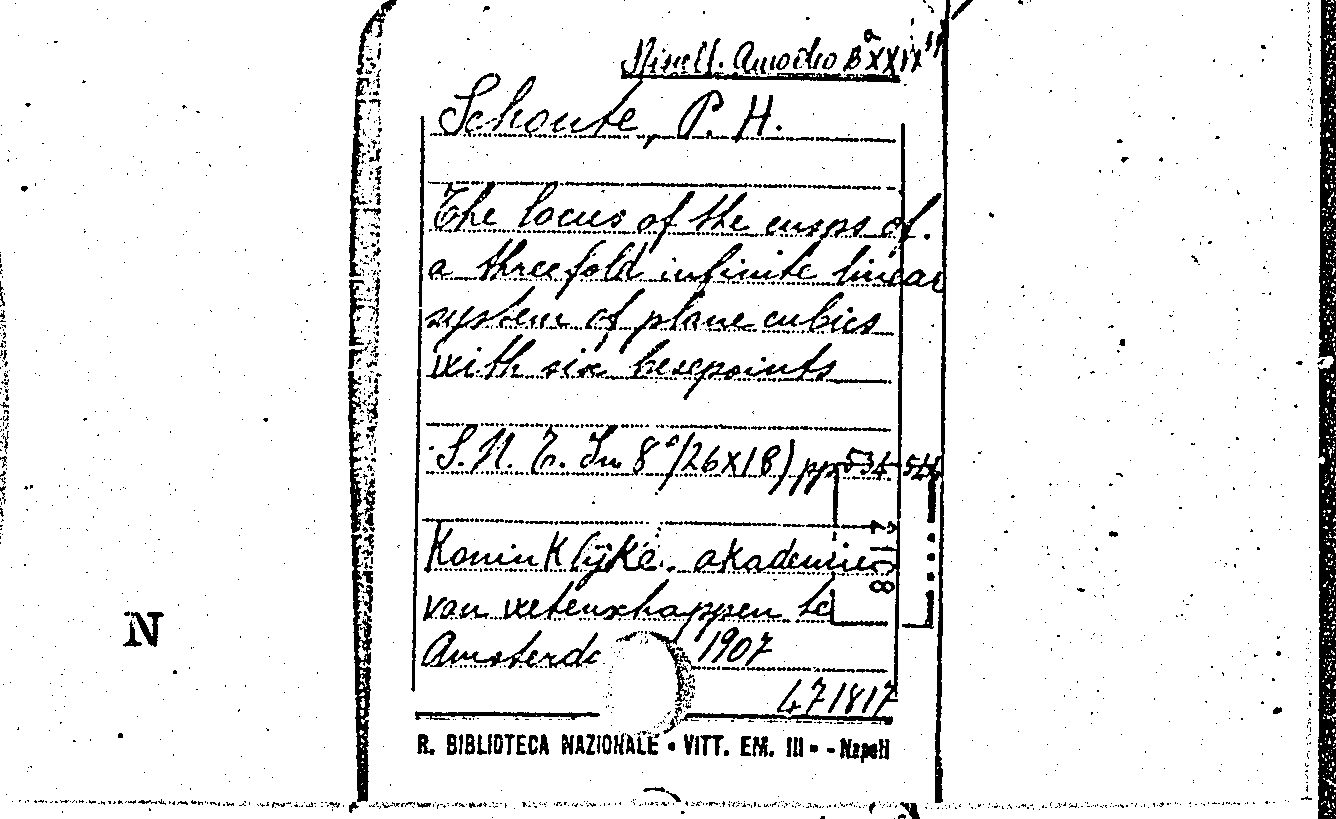 Miscell. Amodeo Bª XXIX
Schoute, P. H.
The locus of the cusps of
a threefold infinite linear
system of plane cubics
with six basepoints
S. N. T. In 8°/26X18) pp 534-544
Koninklijke. akademie
van wetenschappen te
Amsterda 1907
471817
R. BIBLIOTECA NAZIONALE • VITT. EM. III • - Napoli
N